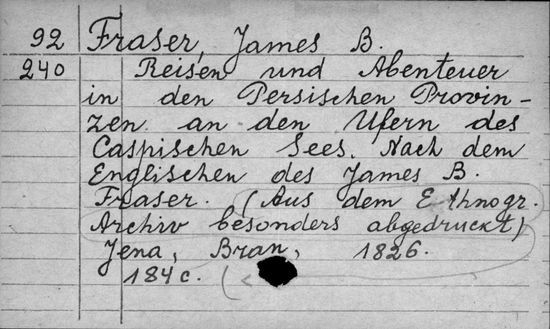 92 Fraser, James B.
240 Reisen und Abenteuer
in den Persischen Provin-
zen an den Ufern des
Caspischen Sees. Nach dem
Englischen des James B.
Fraser. (Aus dem Ethnogr.
Archiv besonders abgedruckt)
Jena, Bran, 1826.
184 c.